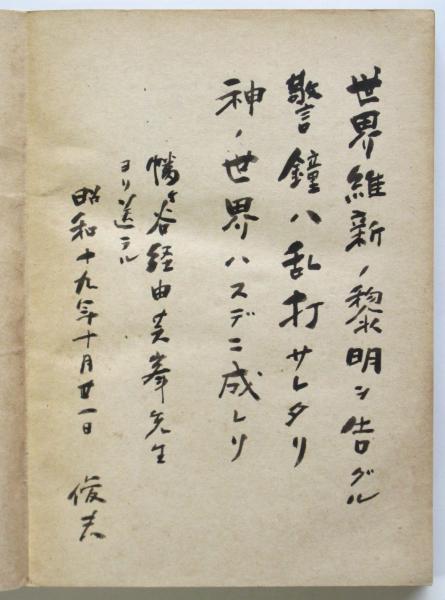 世界維新ノ黎明ヲ告グル
警鐘ハ乱打サレタリ
神ノ世界ハスデニ成レリ
幡ヶ谷経由芙峯先生
ヨリ送ラル
昭和十九年十月廿一日
俊夫